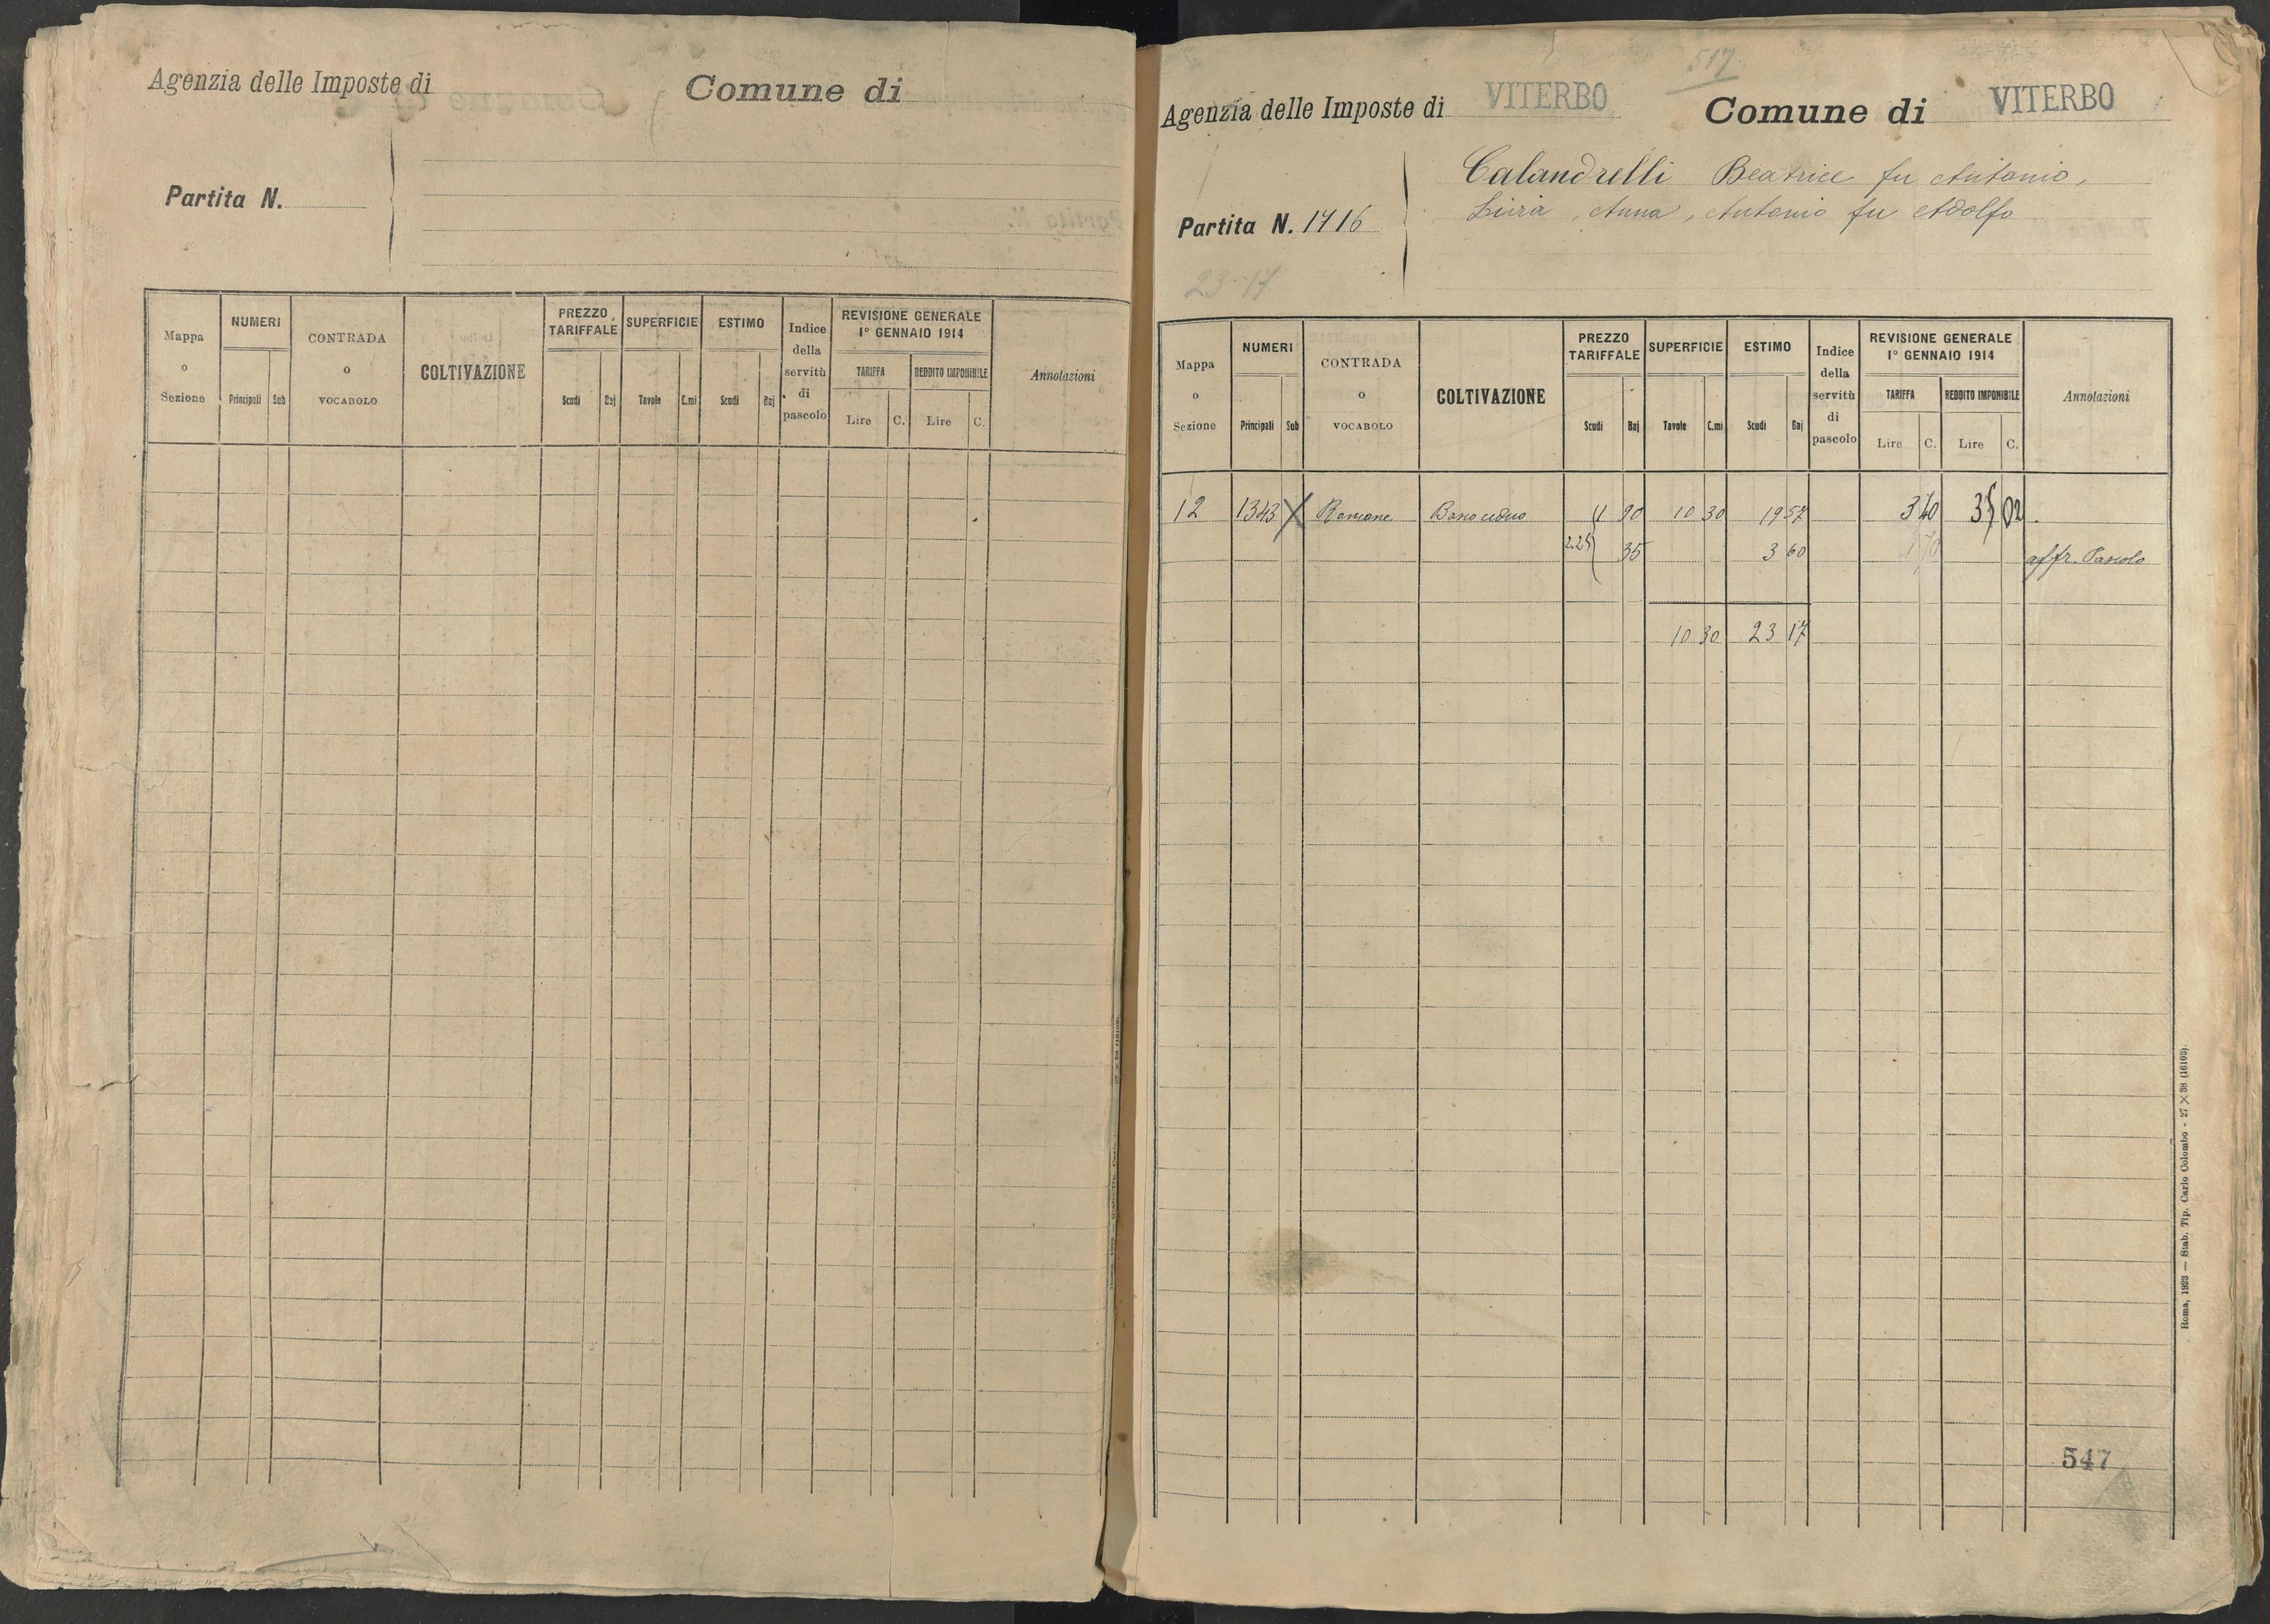 Agenzia delle Imposte di
Comune di
Partita N.
Mappa o Sezione
NUMERI
Principali
Sub
CONTRADA o VOCABOLO
COLTIVAZIONE
PREZZO TARIFFALE
Scudi
Baj
SUPERFICIE
Tavole
C.mi
ESTIMO
Scudi
Baj
Indice della servitù di pascolo
REVISIONE GENERALE
1° GENNAIO 1914
TARIFFA
Lire
C.
REDDITO IMPONIBILE
Lire
C.
Annotazioni
517
Agenzia delle Imposte di VITERBO
Comune di VITERBO
Calandrelli Beatrice fu Antonio,
Livia, Anna, Antonio fu Adolfo
Partita N. 1716
23-17
Mappa o Sezione
NUMERI
Principali
Sub
CONTRADA o VOCABOLO
COLTIVAZIONE
PREZZO TARIFFALE
Scudi
Baj
SUPERFICIE
Tavole
C.mi
ESTIMO
Scudi
Baj
Indice della servitù di pascolo
REVISIONE GENERALE
1° GENNAIO 1914
TARIFFA
Lire
C.
REDDITO IMPONIBILE
Lire
C.
Annotazioni
12 1343 Bosco ceduo 1 90 10 30 19 57 3 40 35 02
2.25 35 3 60 affr. Pascolo
10 30 23 17
547
Roma, 1923 — Stab. Tip. Carlo Colombo - 27 X 38 (16103).